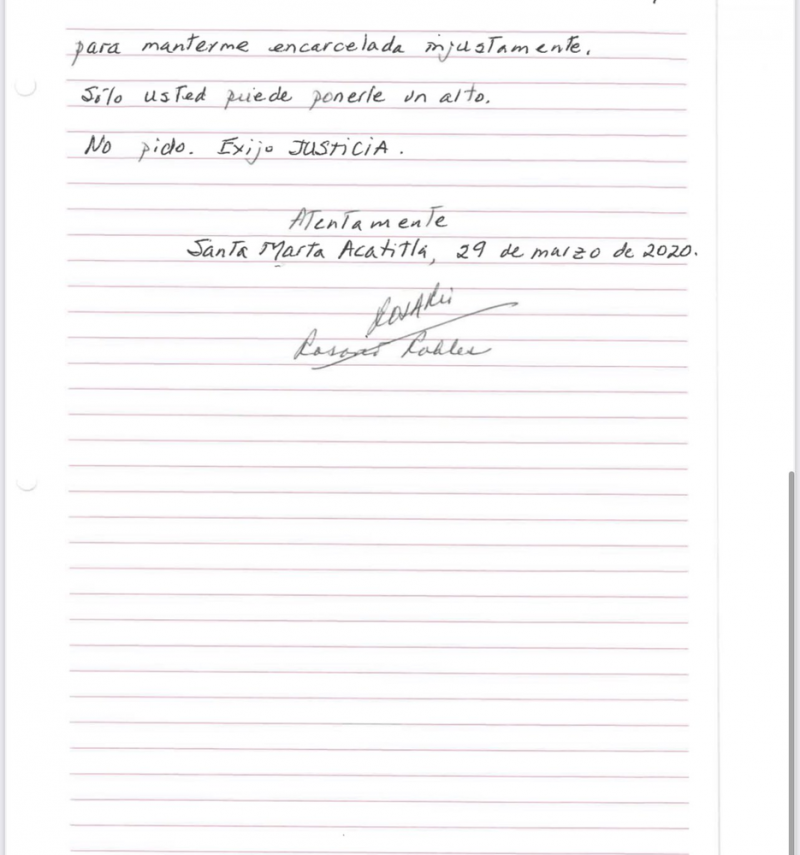 para manterme encarcelada injustamente.
Sólo usted puede ponerle un alto.
No pido. Exijo JUSTICIA.
Atentamente
Santa Marta Acatitla, 29 de marzo de 2020.
ROSARIO
Rosario Robles